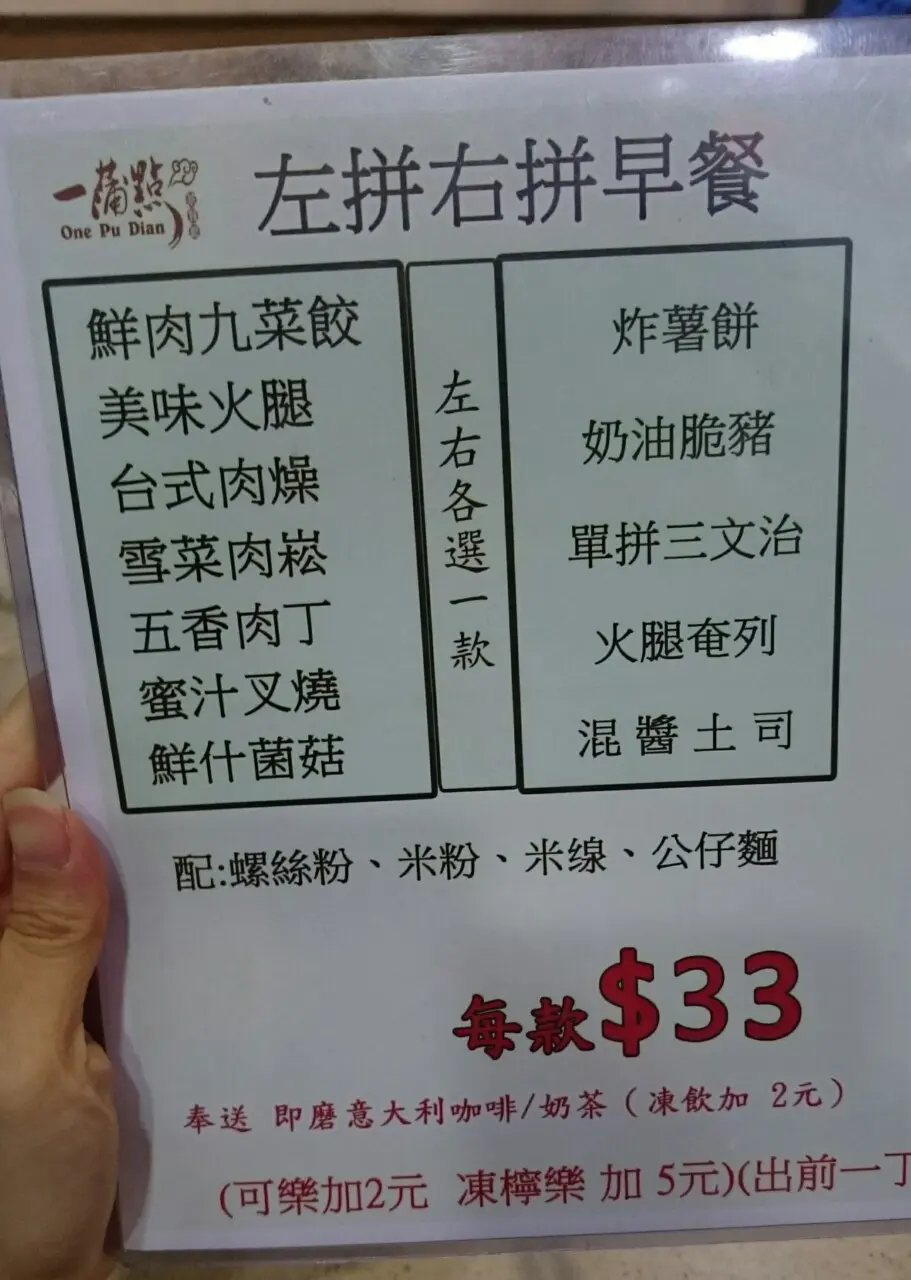 一蒲點
One Pu Dian
左拼右拼早餐
鮮肉九菜餃
美味火腿
台式肉燥
雪菜肉崧
五香肉丁
蜜汁叉燒
鮮什菌菇
左右各選一款
炸薯餅
奶油脆豬
單拼三文治
火腿奄列
混醬土司
配:螺絲粉、米粉、米缐、公仔麵
每款$33
奉送 即磨意大利咖啡/奶茶（凍飲加 2元）
(可樂加2元 凍檸樂 加 5元)(出前一丁